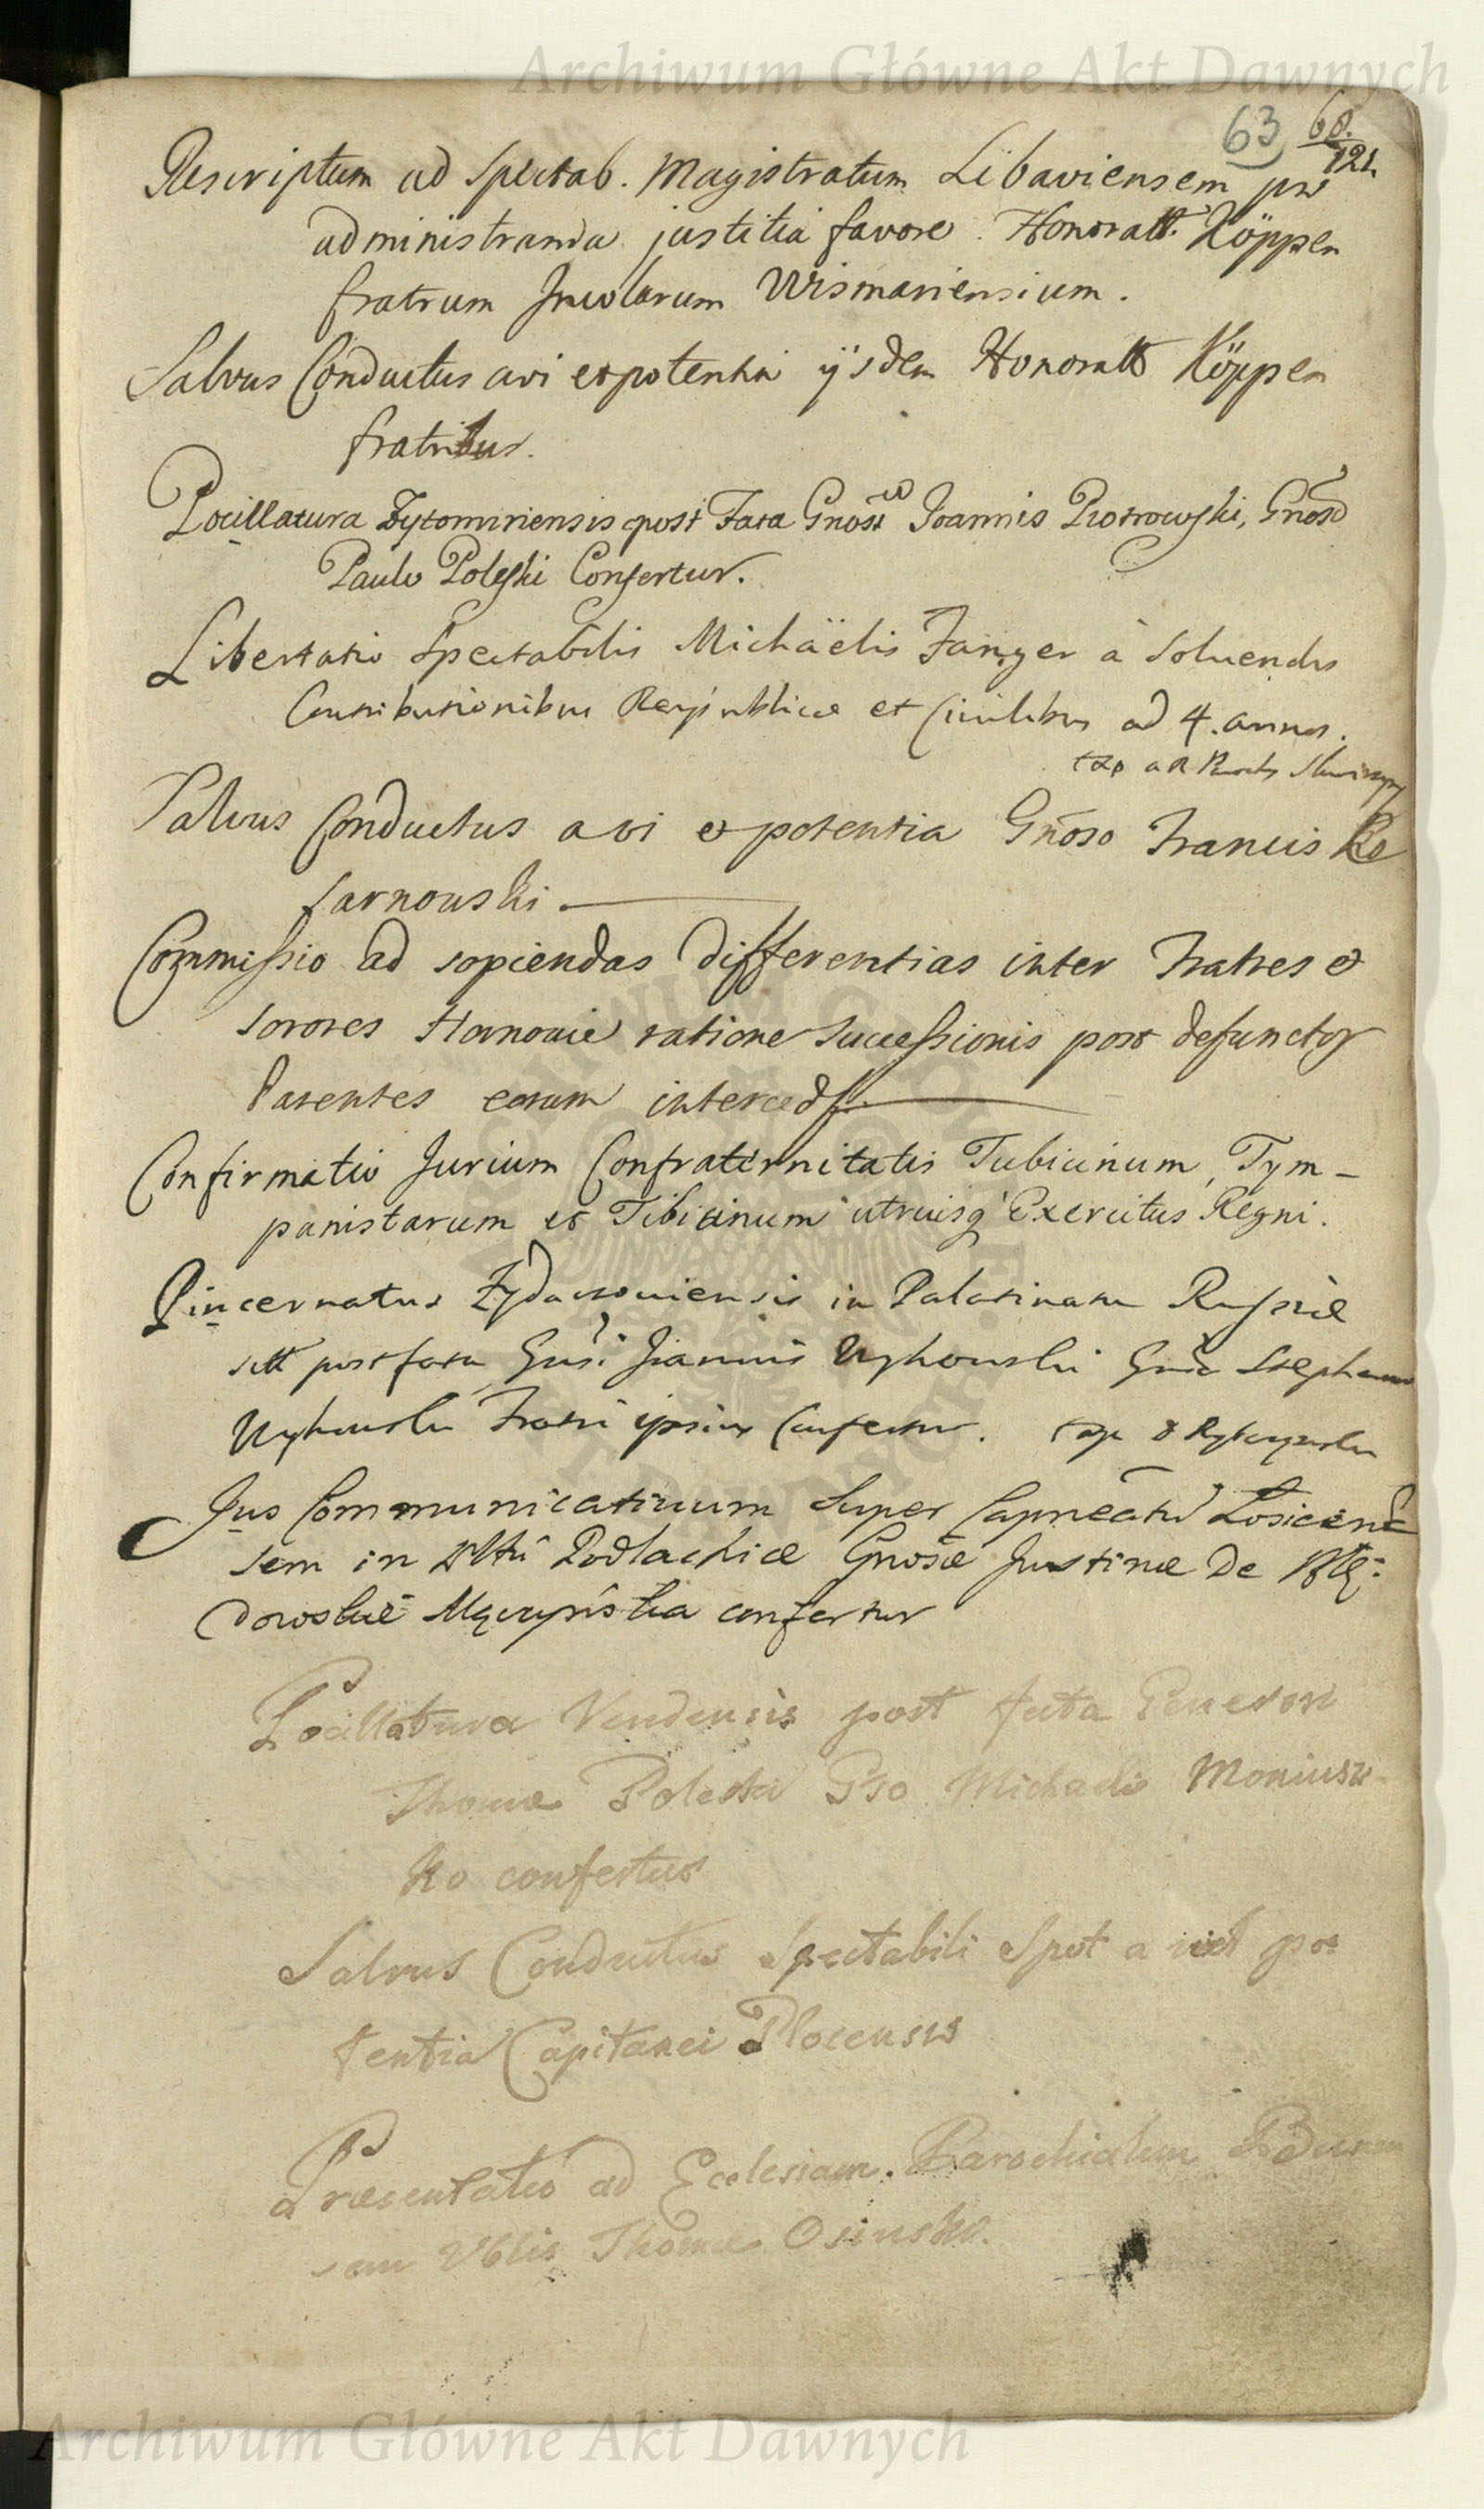 Archiwum Główne Akt Dawnych
63 68.
121.
Rescriptum ad Spectab. Magistratum Libaviensem pro
administranda justitia favore Honoratt. Köppen
fratrum Incolarum Wismariensium.
Salvus Conductus a vi et potentia ijsdem Honoratt Köppen
fratribus.
Pocillatura Zytomiriensis post Fata Gnosi Joannis Piotrowski, Gnoso
Paulo Poleski Confertur.
Libertatio Spectabilis Michäelis Fanger à Soluendis
Contributionibus Reipublicae et Ciuilibus ad 4. annos.
Salvus Conductus a vi et potentia Gnoso Francisko
Sarnowski
Commissio ad sopiendas differentias inter Fratres et
Sorores ratione Successionis post defunctos
Parentes eorum interced.
Confirmatio Jurium Confraternitatis Tubicinum, Tym-
panistarum et Tibicinum utriusq Exercitus Regni.
Pincernatus Zydaczouiensis in Palatinatu Russiae
post fata Gnsi Joannis Wyhowski Gnso Stephano
Wyhowski Fratri ipsius Confertur.
Jus Communicatiuum Super Capneatu Losicen
sem in Pltu Podlachiae Gnosae Justinae De
confertur
Pocillatura Vendensis post fata Generosi
Thomae Poleski Gso Michaeli Moniusz-
ko confertur
Salvus Conductus Spectabili Spot a vi et po
tentia Capitanei Plocensis
Praesentatio ad Ecclesiam Parochialem
Vblis Thomae Osinsko.
Archiwum Główne Akt Dawnych